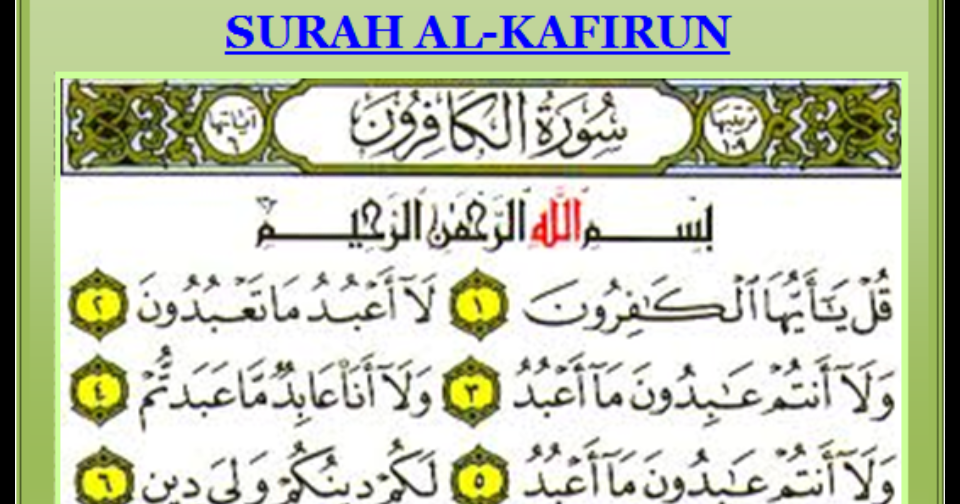 SURAH AL-KAFIRUN
ترتيبها ١٠٩ سُورَةُ الكَافِرُونَ آياتها ٦
بِسْمِ اللَّهِ الرَّحْمَٰنِ الرَّحِيمِ
قُلْ يَـٰٓأَيُّهَا ٱلْكَـٰفِرُونَ ١ لَآ أَعْبُدُ مَا تَعْبُدُونَ ٢
وَلَآ أَنتُمْ عَـٰبِدُونَ مَآ أَعْبُدُ ٣ وَلَآ أَنَا۠ عَابِدٌ مَّا عَبَدتُّمْ ٤
وَلَآ أَنتُمْ عَـٰبِدُونَ مَآ أَعْبُدُ ٥ لَكُمْ دِينُكُمْ وَلِىَ دِينِ ٦